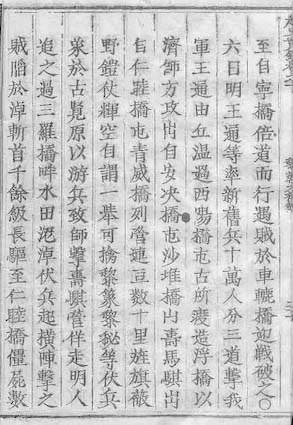 至自寧橋倍道而行遇賊於車轆橋迎戰破之○
六日明王通等率新舊兵十萬人分三道擊我
軍王通由丘溫過西陽橋屯古所渡造浮橋以
濟師方政出自安决橋屯沙堆橋山壽馬騏出
自仁睦橋屯青威橋列營連亘數十里旌旗蔽
野鎧仗輝空自謂一舉可擒黎篆黎秘等伏兵
象於古覽原以游兵致師擊壽騏營佯走明人
追之過三羅橋畔水田泥淖伏兵起橫陣擊之
賊陷於淖斬首千餘級長驅至仁睦橋僵屍數